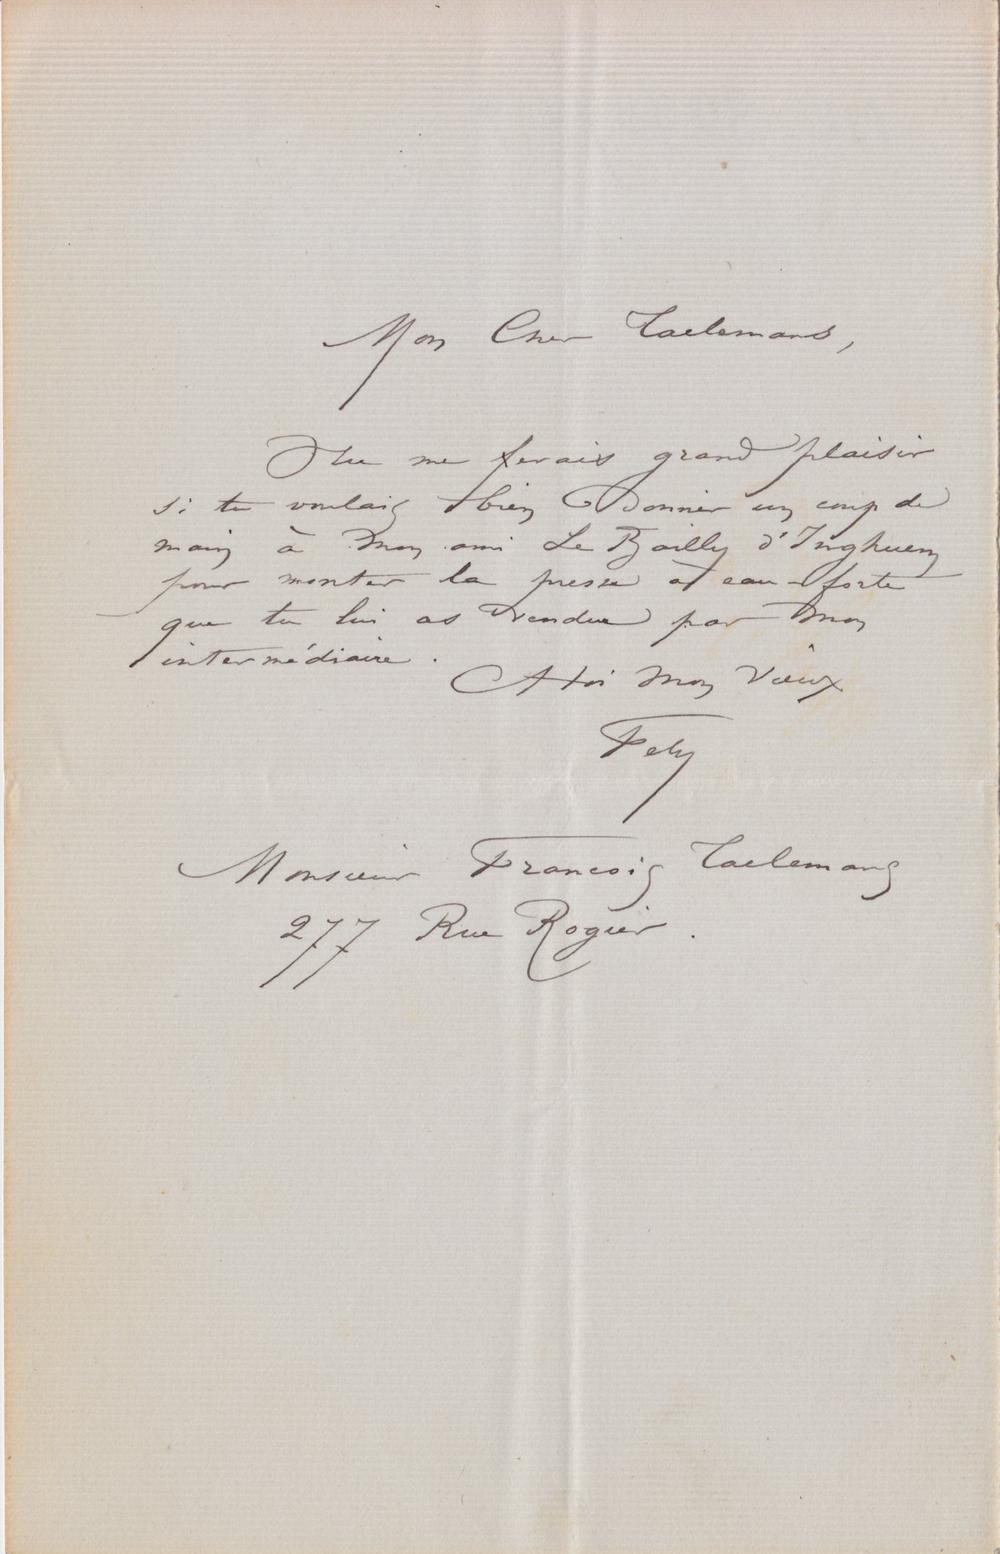 Mon Cher Taelemans,
Tu me ferais grand plaisir
si tu voulais bien Donner un coup de
main à Mon ami Le Bailly d'Inghuem
pour monter la presse à eau-forte
que tu lui as Vendue par Mon
intermédiaire.
A toi Mon Vieux
Fely
Monsieur Francois Taelemans
277 Rue Rogier.